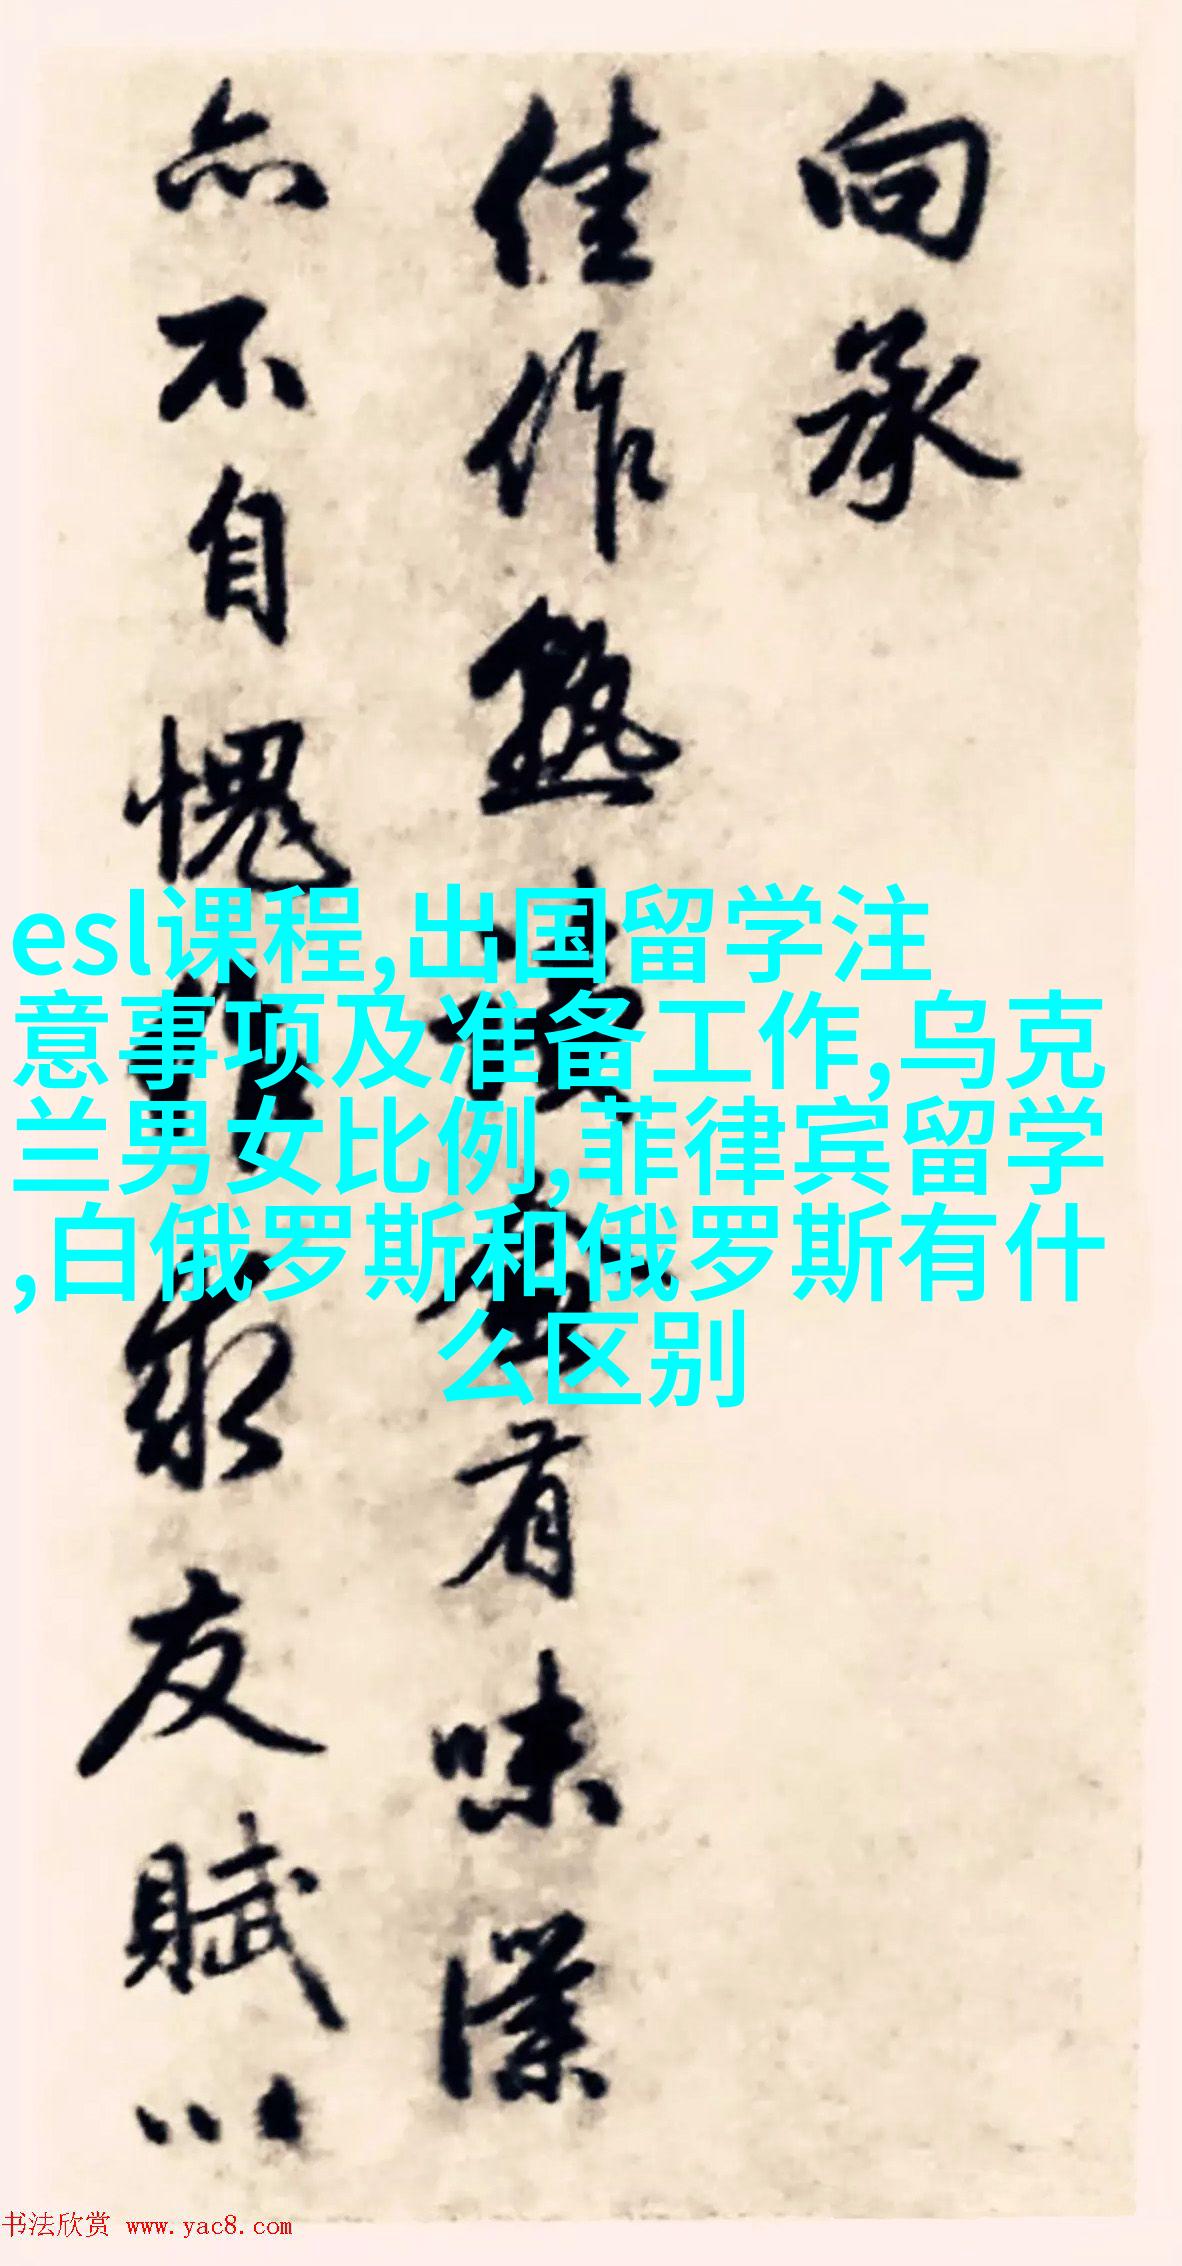 向承
佳作熟读甚有味深
亦不自愧作求友赋以
esl课程,出国留学注
意事项及准备工作,乌克
兰男女比例,菲律宾留学
,白俄罗斯和俄罗斯有什
么区别
书法欣赏 www.yac8.com